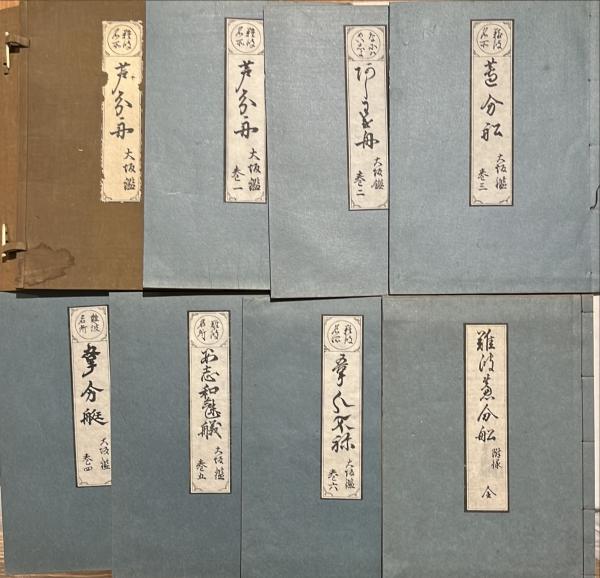 難波名所
芦分舟
大坂鑑
難波名所
芦分舟
大坂鑑
巻一
なにはめいしよ
大坂鑑
巻二
難波名所
芦分舩
大坂鑑
巻三
難波名所
葦分艇
大坂鑑
巻四
難波名所
大坂鑑
巻五
難波名所
大坂鑑
巻六
難波芦分舩
附録
全